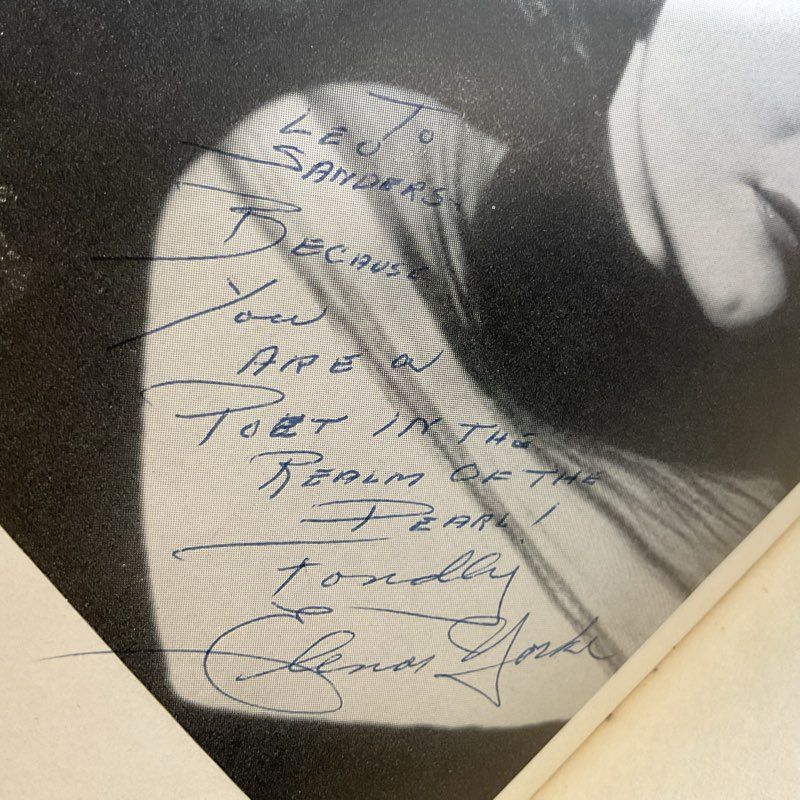 To
Leo
Sanders.
Because
You
Are a
Poet in the
Realm of the
Pearl!
Fondly
Elenor Yorke